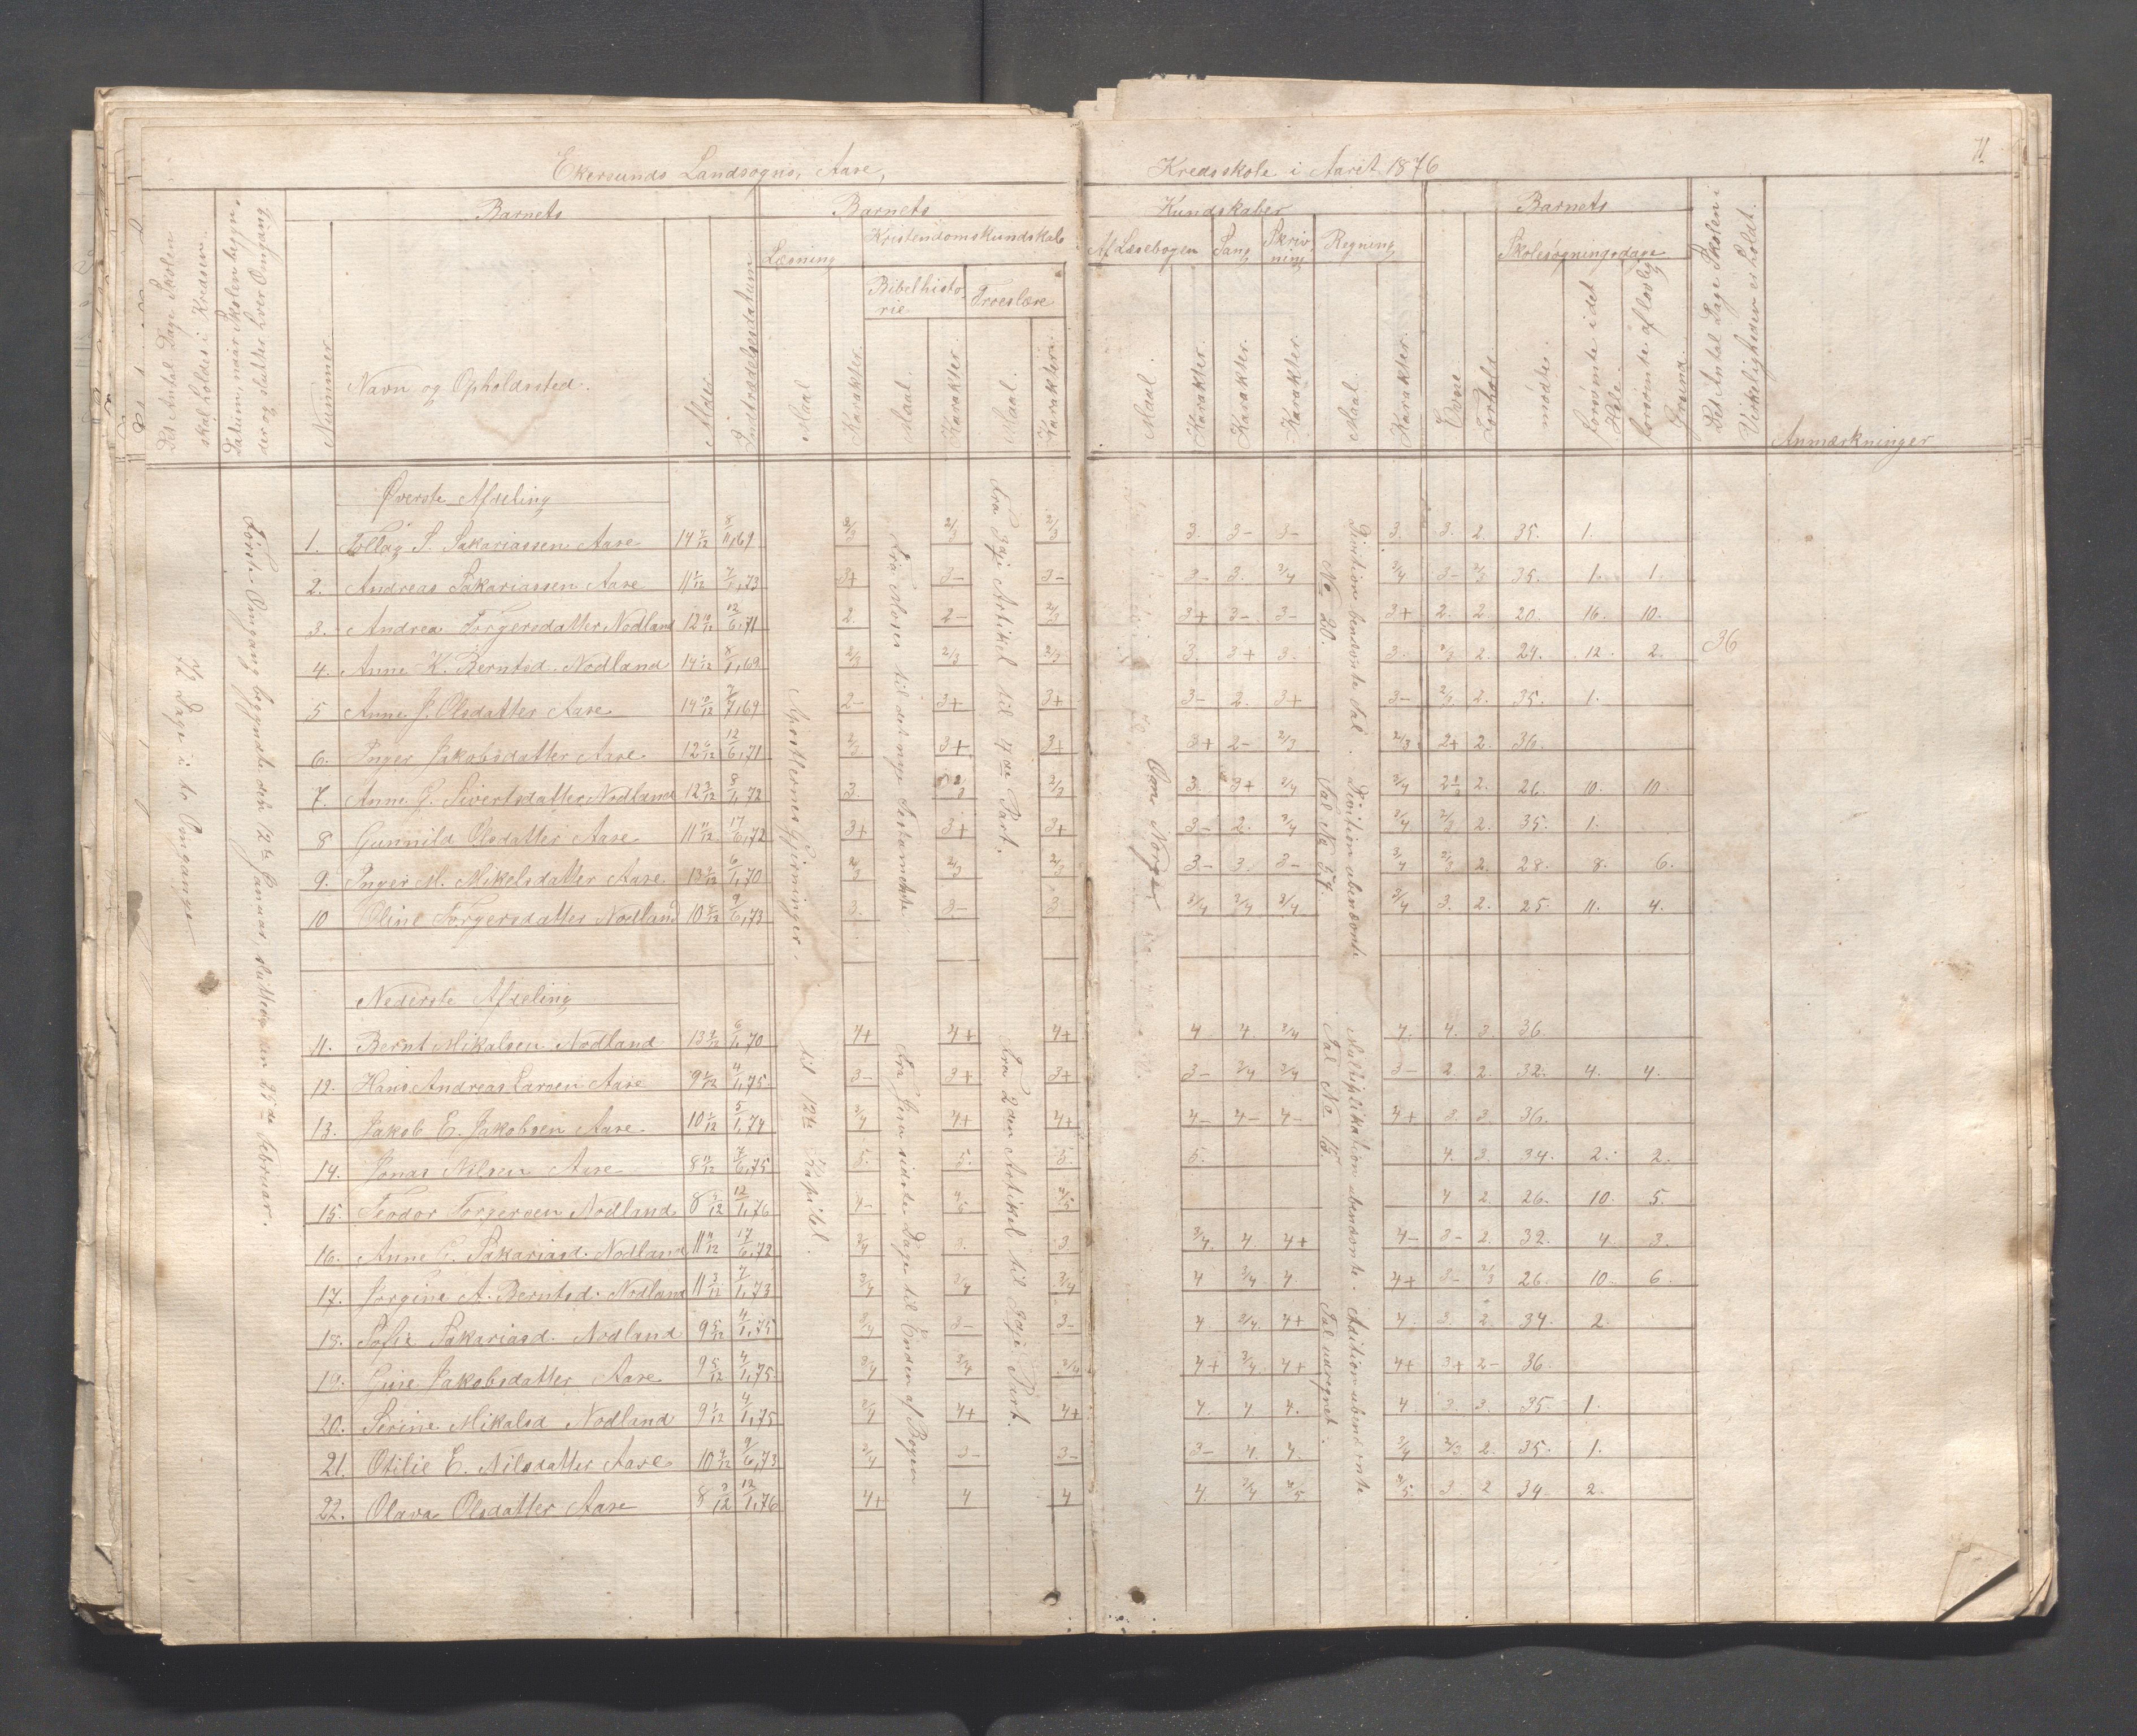 Ekersunds Landsogns, Aase, Kredsskole i Aaret 1876
71
Det Antal Dage Skolen skal holdes i Kredsen.
Datum, naar Skolen begynder og slutter hver Omgang
Barnets
Nummer
Navn og Opholdssted.
Alder.
Indtrædelsesdatum
Barnets
Læsning
Maal
Karakter.
Kristendomskundskab
Bibelhistorie
Maal.
Karakter.
Troeslære
Maal.
Karakter.
Kundskaber
Af Læsebogen
Maal.
Karakter.
Sang
Karakter.
Skrivning
Karakter.
Regning
Maal.
Karakter.
Barnets
Evne
Forhold.
Skolesøgningsdage
mødte.
forsømte i det Hele.
forsømte af lovlig Grund.
Det Antal Dage Skolen i Virkeligheden er holdt.
Anmærkninger
72 Dage i to Omgange
Første Omgang begyndte den 12te Januar, sluttede den 25de Februar.
Apostlernes Gjerninger. til 12te Kapitel.
Øverste Afdeling
Fra Moses til det nye Testamente
Fra 3dje Artikel til 4de Part.
Om Norge
No 20.
Tal No 54.
36
1. Tollag S. Sakariassen Aase 14 8/11,69 2/3 2/3 2/3 3. 3- 3- 3. 3. 2. 35. 1.
2. Andreas Sakariassen Aase 11 7/1,73 3+ 3- 3- 3- 3. 3/4 3/4 3- 2/3 35. 1. 1.
3. Andrea Torgersdatter Nodland 12 12/6,71 2. 2- 2/3 3+ 3- 3- 3+ 2. 2. 20. 16. 10.
4. Anne K. Berntsd. Nodland 14 8/1,69 2/3 2/3 2/3 3. 3+ 3. 3. 2/3 2. 24. 12. 2.
5 Anne J. Olsdatter Aase 14 69 2- 3+ 3+ 3- 2. 3+ 3- 2/3 2. 35. 1.
6. Inger Jakobsdatter Aase 12 12/6,71 2/3 3+ 3+ 3+ 2- 2/3 2/3 2+ 2. 36.
7. Anne G. Sivertsdatter Nodland 12 8/1,72 3. 2/3 3. 3+ 3/4 3/4 2. 26. 10. 10.
8 Gunnild Olsdatter Aase 11 17/6,72 3+ 3+ 3+ 3- 2. 3/4 3/4 2/3 2. 35. 1.
9. Inger M. Mikelsdatter Aase 13 6/1,70 2/3 2/3 2/3 3- 3. 3- 3/4 2/3 2. 28. 8. 6.
10 Oline Torgersdatter Nodland 10 9/6,73 3. 3- 3. 3/4 3/4 3/4 3/4 3. 2. 25. 11. 4.
Nederste Afdeling
Fra Jesu sidste Dage til Enden af Bogen
Fra 2den Artikel til 3dje Part.
Tal No 15.
Tal udregnet.
11. Bernt Mikalsen Nodland 13 6/1,70 4+ 4+ 4+ 4 4. 3/4 4. 4. 3. 36.
12. Hans Andreas Larsen Aase 9 4/1,75 3- 3+ 3+ 3- 3/4 3/4 3- 2. 2. 32. 4. 4.
13. Jakob E. Jakobsen Aase 10 5/1,74 3/4 4+ 4+ 4- 4- 4- 4+ 3. 3. 36.
14. Jonas Nilsen Aase 8 7/6,75 5. 5. 5. 5. 4. 3. 34. 2. 2.
15. Teodor Torgersen Nodland 8 12/1,76 4- 4/5 4/5 4 2. 26. 10. 5.
16. Anne Sakariasd. Nodland 11 17/6,72 3/4 3. 3 3/4. 4. 4+ 4- 3- 2. 32. 4. 3.
17. Jorgine A. Berntsd. Nodland 11 7/1,73 3/4 3/4 3/4 4 3/4 4 4+ 3- 2/3 26. 10. 6.
18. Sofie Sakariasd. Nodland 9 5/12 4/1,75 3/4 3- 3- 4 3/4 4+ 4. 3. 2. 34. 2.
19. Gine Jakobsdatter Aase 9 5/12 4/1,75 3/4 3/4 3/4 4+ 3/4 4+ 4+ 3+ 2- 36.
20. Serine Mikalsd Nodland 9 4/1,75 3/4 4+ 4+ 4. 4 4. 4 3. 3. 35. 1.
21. Otilie E. Nilsdatter Aase 10 9/6,73 3/4 3- 3- 3- 4. 4. 3/4 2/3 2. 35. 1.
22. Olava Olsdatter Aase 8 12/1,76 4+ 4 4 4. 3/4 4/5. 4/5. 3. 2 34. 2.